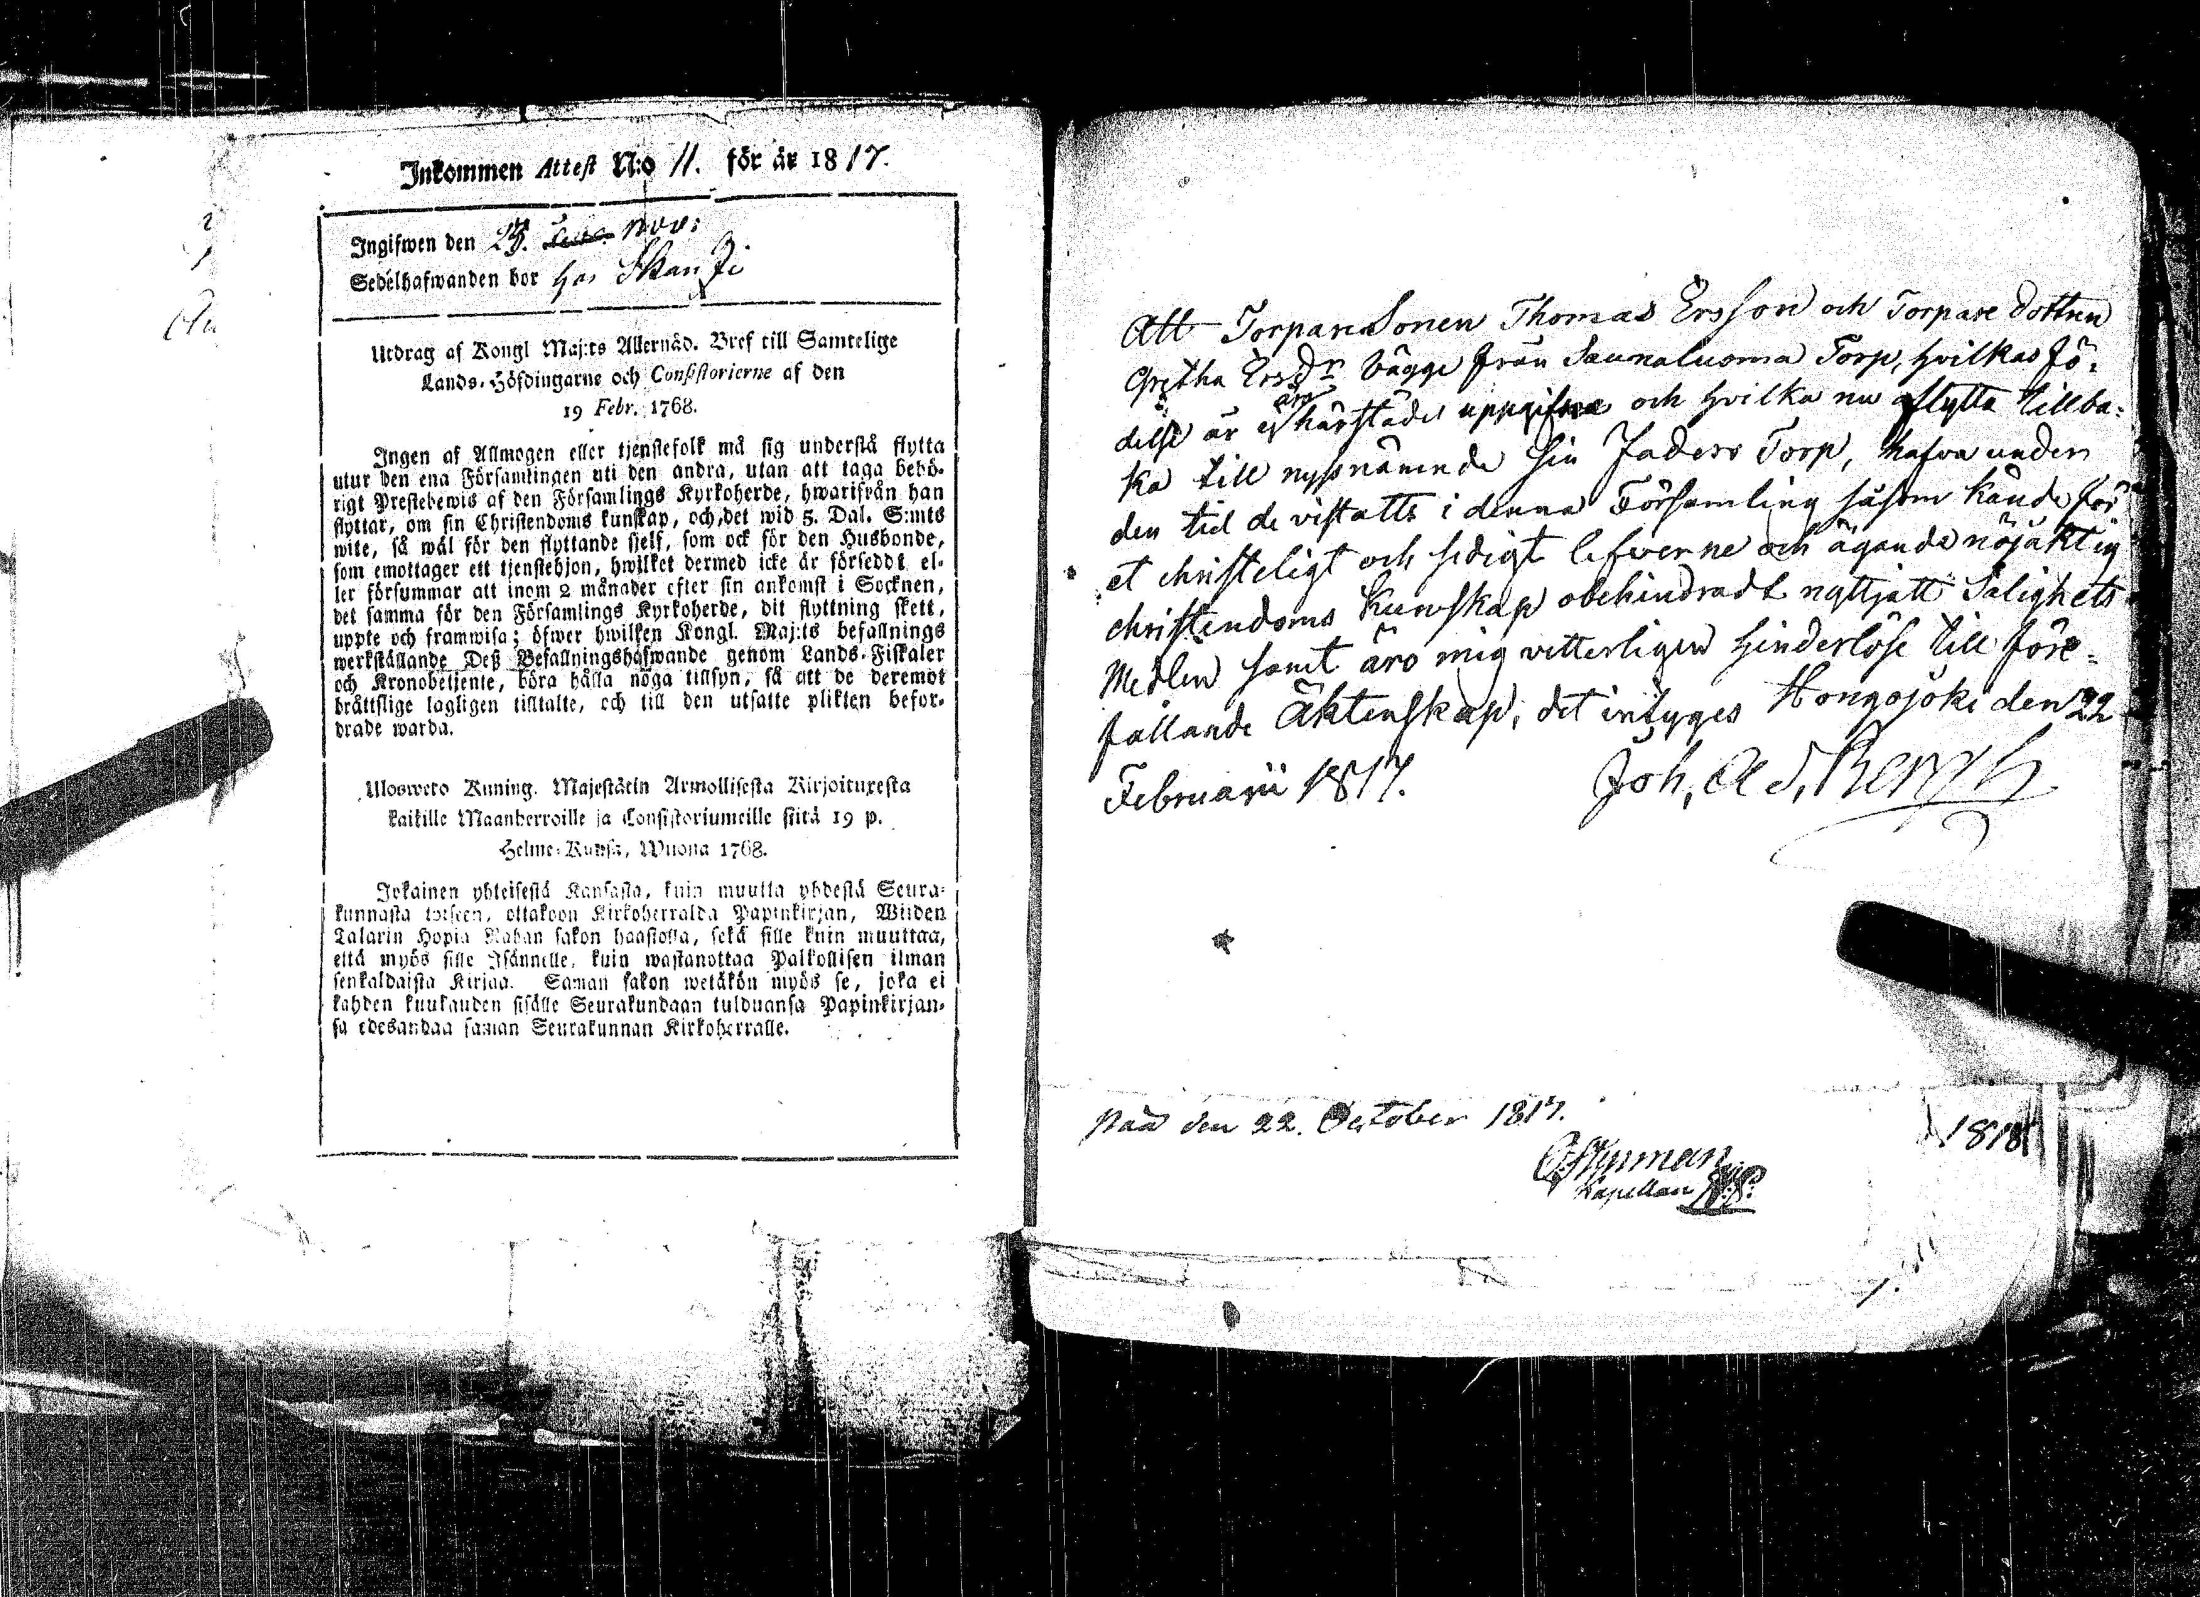 Inkommen Attest N:o 11. för år 1817.
Ingifwen den 23. Nov:
Sedelhafwanden bor hos Skanzi
Utdrag af Kongl Maj:ts Allernåd. Bref till Samtelige
Lands-Höfdingarne och Consistorierne af den
19 Febr. 1768.
Ingen af Allmogen eller tjenstefolk må sig understå flytta
utur den ena Församlingen uti den andra, utan att taga behö-
rigt Prestebewis af den Församlings Kyrkoherde, hwarifrån han
flyttar, om sin Christendoms kunskap, och det wid 5. Dal. S:mts
wite, så wäl för den flyttande sjelf, som ock för den Husbonde,
som emottager ett tjenstehjon, hwilket dermed icke är förseddt el-
ler försummar att inom 2 månader efter sin ankomst i Socknen,
det samma för den Församlings Kyrkoherde, dit flyttning skett,
uppte och framwisa; öfwer hwilken Kongl. Maj:ts befallnings
werkställande Deß Befallningshafwande genom Lands-Fiskaler
och Kronobetjente, böra hålla noga tillsyn, så att de deremot
bråttslige lagligen tilltalte, och till den utsatte plikten befor-
drade warda.
Ulosweto Kuning. Majestätin Armollisesta Kirjoituxesta
kaikille Maanherroille ja Consistoriumeille siitä 19 p.
Helme-Kuusa, Wuona 1768.
Jokainen yhteisestä Kansasta, kuin muutta yhdestä Seura-
kunnasta toiseen, ottakoon Kirkoherralda Papinkirjan, Wiiden
Talarin Hopia Rahan sakon haastolla, sekä sille kuin muuttaa,
että myös sille Isännelle, kuin wastanottaa Palkollisen ilman
senkaldaista Kirjaa. Saman sakon wetäkön myös se, joka ei
kahden kuukauden sisälle Seurakundaan tulduansa Papinkirjan-
sa edesandaa saman Seurakunnan Kirkoherralle.
Att Torparesonen Thomas Ersson och Torpare dottren
Gretha Ersdr bägge från Saunaluoma Torp, hvilkas fö-
delse är ej härstädes och hvilka nu aflytta tillba-
ka till nyssnämnde sin Faders Torp, hafva under
den tid de vistatts i denna Församling såsom kände för
et christeligt och sedigt lefverne och ägande nöjaktig
christendoms Kunskap obehindradt nyttjatt Salighets
Medlen samt äro mig vetterligen hinderlöse till före-
fallande Äktenskap; det intyges Hongojoki den 22
Februarii 1817. Joh. Ad. Bergh
den 22. October 1817.
Kapellan
1818